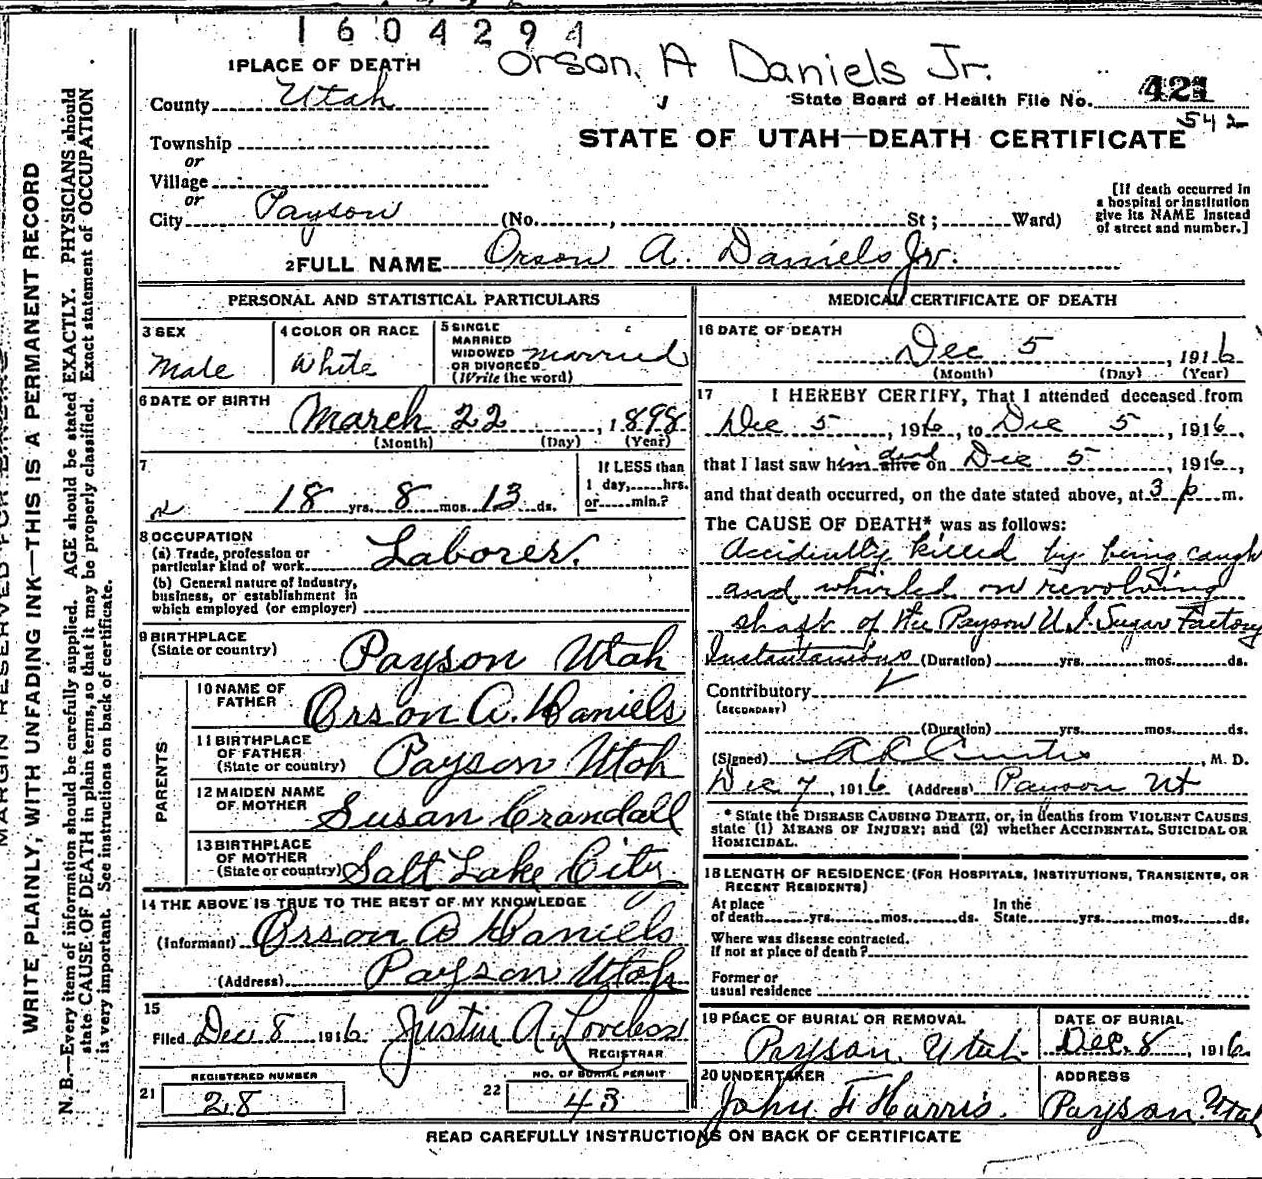 1604294
Orson A Daniels Jr.
1 PLACE OF DEATH
County Utah
State Board of Health File No. 421
542
Township
or
Village
or
City Payson (No. , St; Ward)
STATE OF UTAH—DEATH CERTIFICATE
[If death occurred in
a hospital or institution
give its NAME instead
of street and number.]
2 FULL NAME Orson A. Daniels Jr.
PERSONAL AND STATISTICAL PARTICULARS
3 SEX
Male
4 COLOR OR RACE
White
5 SINGLE
MARRIED
WIDOWED
OR DIVORCED
(Write the word)
Married
6 DATE OF BIRTH
March 22, 1898
(Month) (Day) (Year)
7
18 yrs. 8 mos. 13 ds.
If LESS than
1 day, hrs.
or min.?
8 OCCUPATION
(a) Trade, profession or
particular kind of work Laborer.
(b) General nature of Industry,
business, or establishment in
which employed (or employer)
9 BIRTHPLACE
(State or country) Payson Utah
PARENTS
10 NAME OF
FATHER Orson A. Daniels
11 BIRTHPLACE
OF FATHER
(State or country) Payson Utah
12 MAIDEN NAME
OF MOTHER Susan Crandall
13 BIRTHPLACE
OF MOTHER
(State or country) Salt Lake City
14 THE ABOVE IS TRUE TO THE BEST OF MY KNOWLEDGE
(Informant) Orson A Daniels
(Address) Payson Utah
15
Filed Dec 8 1916 Justin A. Loveless
REGISTRAR
REGISTERED NUMBER
21 28
NO. OF BURIAL PERMIT
22 43
MEDICAL CERTIFICATE OF DEATH
16 DATE OF DEATH
Dec 5, 1916
(Month) (Day) (Year)
17 I HEREBY CERTIFY, That I attended deceased from
Dec 5, 1916, to Dec 5, 1916,
that I last saw him alive dead on Dec 5, 1916,
and that death occurred, on the date stated above, at 3 p m.
The CAUSE OF DEATH* was as follows:
Accidently killed by being caught
and whirled on revolving
shaft of the Payson U. I. Sugar Factory
Instantanious (Duration) yrs. mos. ds.
Contributory
(SECONDARY)
(Duration) yrs. mos. ds.
(Signed) A L Curtis, M. D.
Dec 7, 1916 (Address) Payson Ut
* State the DISEASE CAUSING DEATH, or, in deaths from VIOLENT CAUSES,
state (1) MEANS OF INJURY; and (2) whether ACCIDENTAL, SUICIDAL OR
HOMICIDAL.
18 LENGTH OF RESIDENCE (FOR HOSPITALS, INSTITUTIONS, TRANSIENTS, OR
RECENT RESIDENTS)
At place In the
of death yrs. mos. ds. State yrs. mos. ds.
Where was disease contracted.
if not at place of death?
Former or
usual residence
19 PLACE OF BURIAL OR REMOVAL
Payson, Utah
DATE OF BURIAL
Dec. 8, 1916
20 UNDERTAKER
John F Harris.
ADDRESS
Payson, Utah
READ CAREFULLY INSTRUCTIONS ON BACK OF CERTIFICATE
WRITE PLAINLY, WITH UNFADING INK—THIS IS A PERMANENT RECORD
N. B.—Every item of information should be carefully supplied. AGE should be stated EXACTLY. PHYSICIANS should
state CAUSE OF DEATH in plain terms, so that it may be properly classified. Exact statement of OCCUPATION
is very important. See instructions on back of certificate.